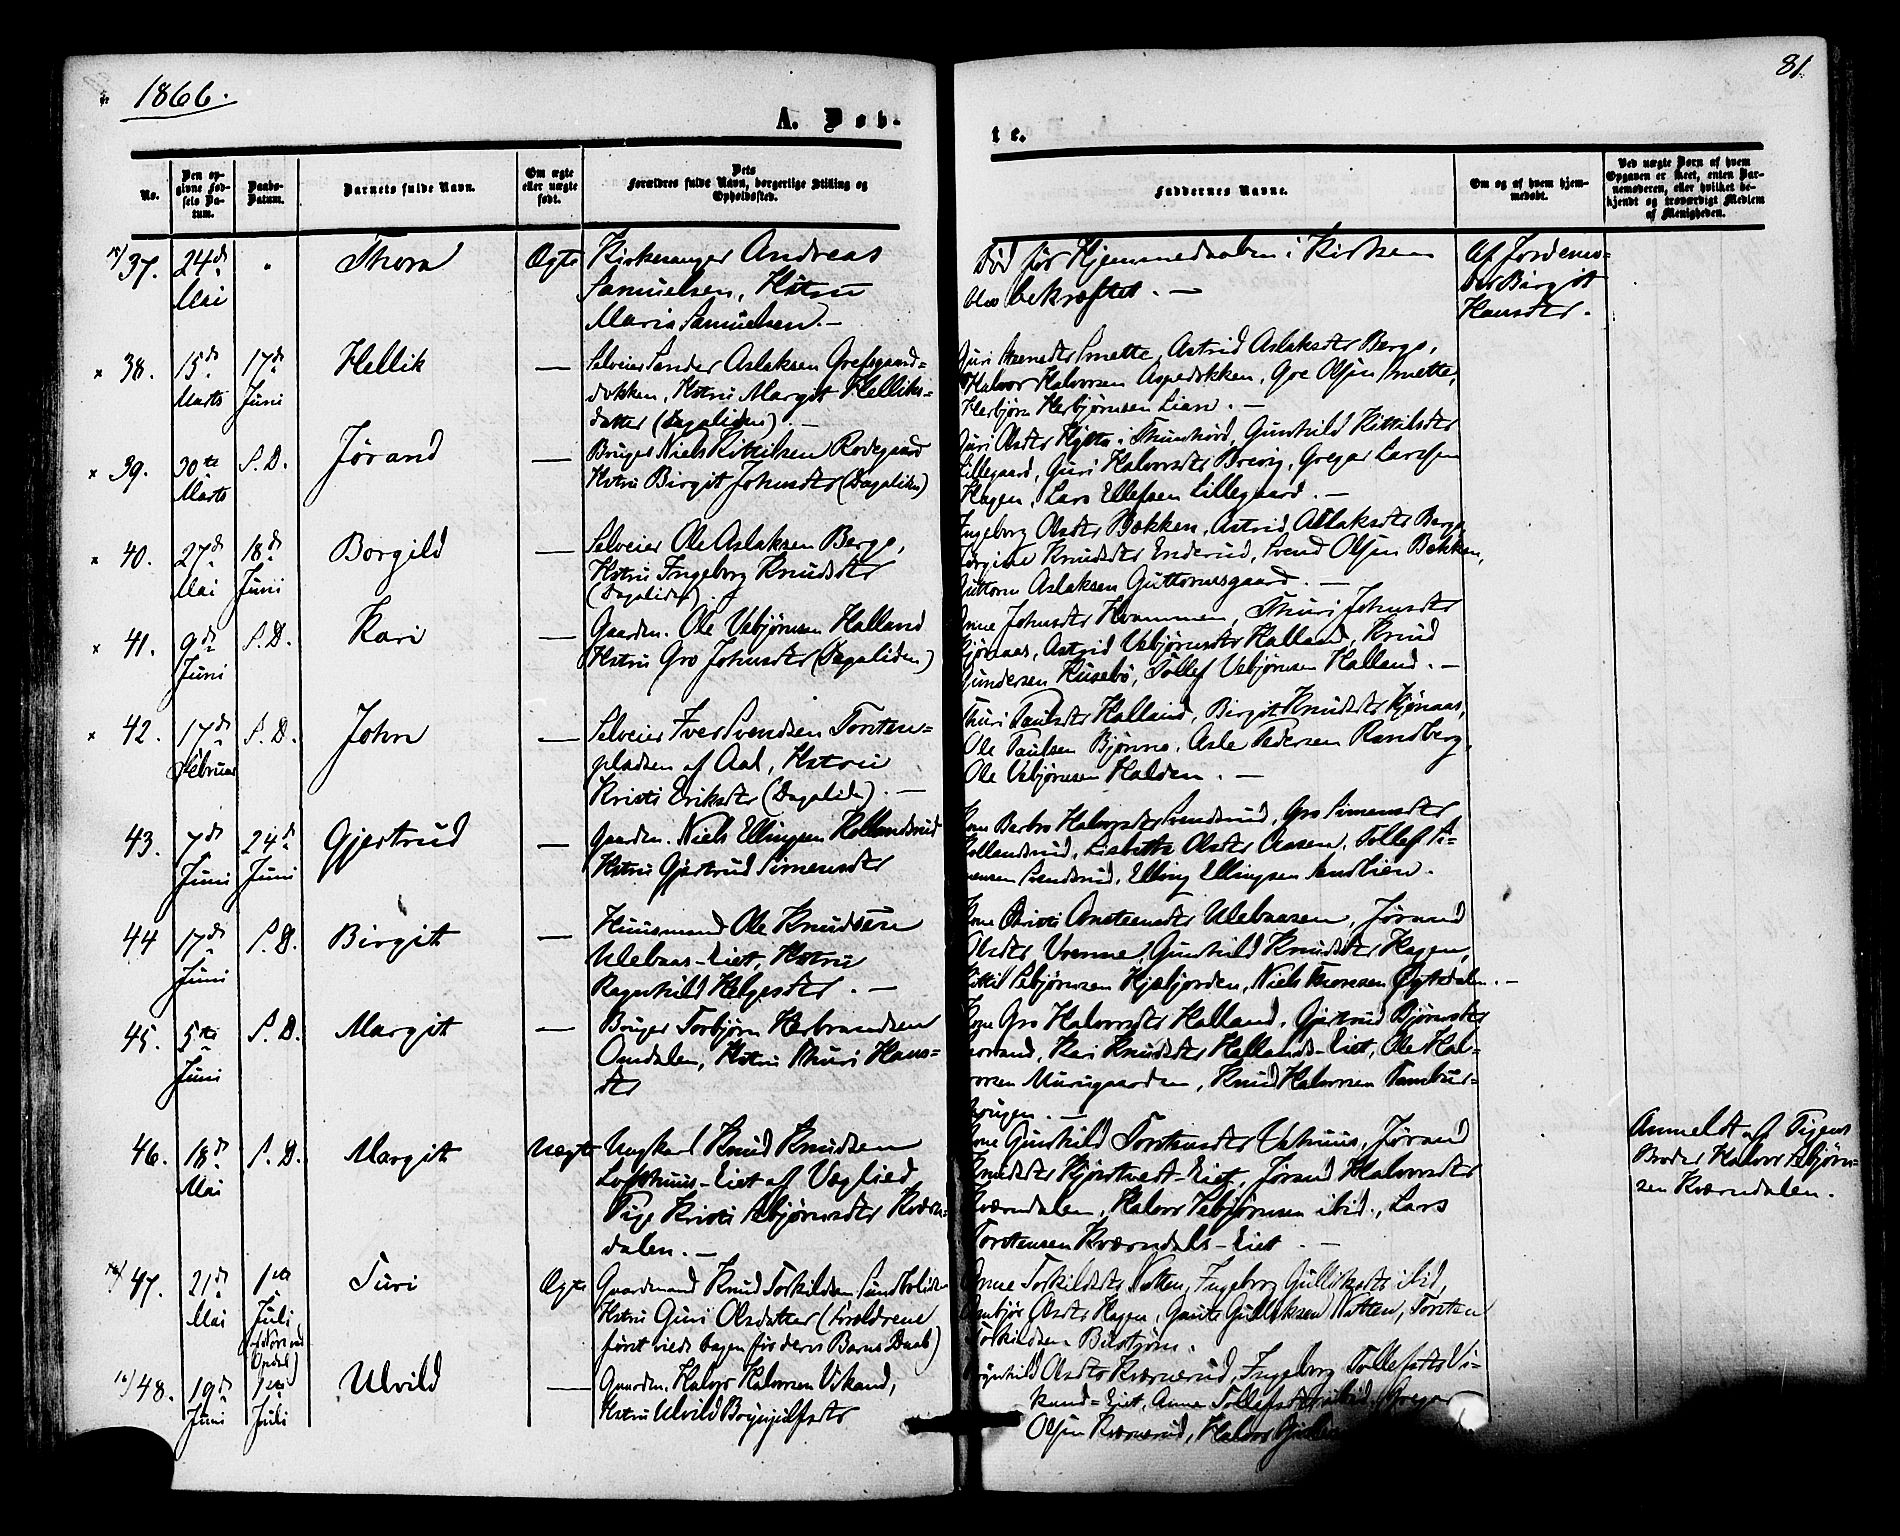 1866.
81.
A. Døb-
te.
No.
Den op-
givne Fød-
sels Da-
tum.
Daabs-
Datum.
Barnets fulde Navn.
Om ægte
eller uægte
født.
Dets
Forældres fulde Navn, borgerlige Stilling og
Opholdssted.
Faddernes Navne.
Om og af hvem hjem-
medøbt.
Ved uægte Børn af hvem
Opgaven er skeet, enten Bar-
nemoderen, eller hvilket be-
kjendt og troværdigt Medlem
af Menigheden.
37.
24de
Mai
"
Thora
Ægte
Kirkesanger Andreas
Samuelsen, Hstru
Maria Samuelsen. –
Død før Hjemmedaaben i Kirken
blev bekræftet. –
Af Jordemo-
der Birgit
Hansdtr.
× 38.
15de
Marts
17de
Juni
Hellik
—
Selveier Sander Aslaksen Grefsgaard-
dokken, Hstru Margit Helliks-
datter (Dagaliden). –
Guri Smette, Astrid Aslaksdtr Berge,
Halvor Halvorsen Aspedokken, Ole Olsen Smette,
Herbjørn Herbjørnsen Lien. –
× 39.
30te
Marts
S. D.
Jørand
—
Bruger Niels Kittilsen Rodegaard
Hstru Birgit Johnsdtr (Dagaliden)
Guri Olsdtr Hytte i Thunhovd, Gunhild Kittilsdtr
Lillegaard, Guri Halvorsdtr Brevig, Gregar Larssen
Hagen, Lars Ellefsen Lillegaard. –
× 40.
27de
Mai
18de
Juni
Borgild
—
Selveier Ole Aslaksen Berge,
Hstru Ingeborg Knudsdtr
(Dagaliden).
Ingeborg Olsdtr Bækken, Astrid Aslaksdtr Berge,
Jørgine Knudsdtr Enderud, Svend Olsen Bekken,
Guttorm Aslaksen Guttormsgaard. –
× 41.
9de
Juni
S. D.
Kari
—
Gaardm. Ole Vebjørnsen Halland
Hstru Gro Johnsdtr (Dagaliden)
Anne Johnsdtr Hvammen, Thuri Johnsdtr
Kjønaas, Astrid Vebjørnsdtr Halland, Knud
Gundersen Husebø, Tollef Vebjørnsen Halland. –
× 42.
17de
Februar
S. D.
John
—
Selveier Iver Svendsen Torsten-
pladsen af Aal, Hstru
Kristi Eriksdtr (Dagalid.). –
Thuri Paulsdtr Halland, Birgit Knudsdtr Kjønaas,
Ole Paulsen Bjønne, Asle Pedersen Randberg,
Ole Vebjørnsen Halden. –
43.
7de
Juni
24de
Juni
Gjertrud
—
Gaardm. Niels Ellingsen Hollandsrud
Hstru Gjertrud Simensdtr
Kone Barbro Halvorsdtr Svendsrud, Gro Simensdtr
Hollandsrud, Lisbeth Olsdtr Aasen, Tollef Si-
mensen Svendsrud, Elling Ellingsen Sandlien.
44
17de
Juni
S. D.
Birgit
—
Huusmand Ole Knudsen
Ulebaas-Eiet, Hstru
Ragnhild Helgesdtr. –
Kone Kristi Anstensdtr Ulebaasen, Jørand
Olsdtr Vrenne, Gunhild Knudsdtr Hagen,
Kittil Sebjørnsen Kjebjorden, Niels Thoresen . –
45.
5te
Juni
S. D.
Margit
—
Bruger Torbjørn Herbrandsen
Omdalen, Hstru Thuri Hans-
dtr
Kone Gro Halvorsdtr Halland, Gjertrud Bjørnsdtr
Kari Knudsdtr Hallands-Eiet, Ole Hal-
vorsen Murugaarden, Knud Halvorsen Tambur-
haugen. –
46.
18de
Mai
S. D.
Margit
Uægte
Ungkarl Knud Knudsen
Lofthuus-Eiet af Veglied,
Pige Kristi Sebjørnsdtr Kværn-
dalen. –
Kone Gunhild Torstensdtr Vehuus, Jørand
Knudsdtr Kjørstvedt-Eiet, Jørand Halvorsdtr
Kværndalen, Halvor Sebjørnsen ibid., Lars
Torstensen Kværndals-Eiet –
Anmeldt af Pigens
Broder Halvor Sebjørn-
sen Kværndalen.
47.
21de
Mai
1ste
Juli
Turi
Ægte
Gaardmand Knud Torkildsen
Hstru Guri Olsdatter (Forældrene
først viede dagen før deres Barns Daab)
Anne Torkildsdtr Natten, Ingeborg Gulliksdtr ibid,
Olsdtr Hagen, Gunte Gulliksen Natten, Torsten
Torkildsen
48.
19de
Juni
1ste
Juli
Ulvild
—
Gaardm. Halvor Halvorsen Vikand,
Hstru Ulvild Brynjulfsdtr
Olsdtr Kværnerud, Ingeborg Tollefsdtr Vi-
kand-Eiet, Anne Tollefsdtr ibid, Gregar
Olsen Kværnerud, Halvor